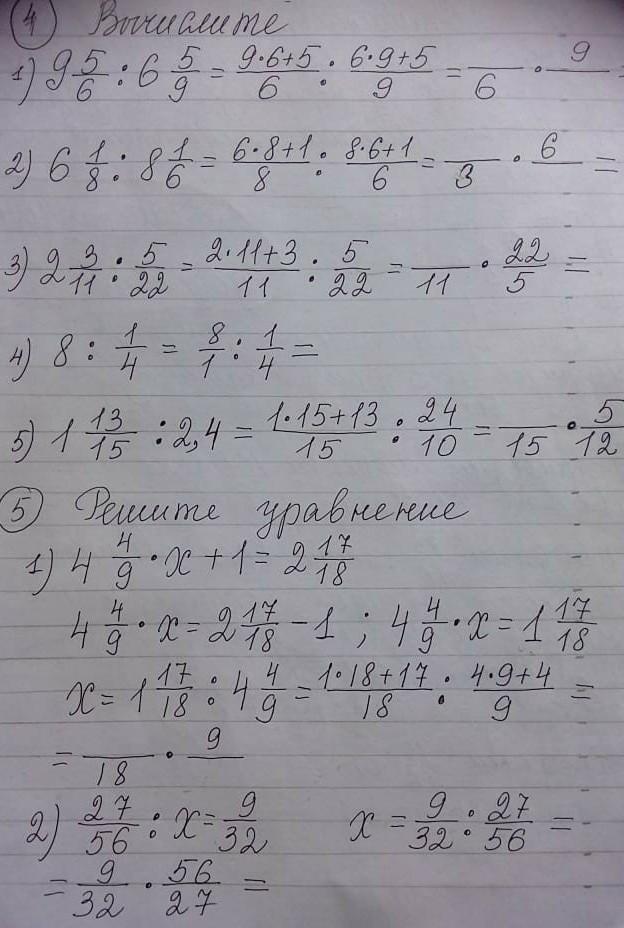 ④ Вычислите
1) 9 5/6 : 6 5/9 = (9·6+5)/6 : (6·9+5)/9 = __/6 · 9/__ =
2) 6 1/8 : 8 1/6 = (6·8+1)/8 : (8·6+1)/6 = __/3 · 6/__ =
3) 2 3/11 : 5/22 = (2·11+3)/11 : 5/22 = __/11 · 22/5 =
4) 8 : 1/4 = 8/1 : 1/4 =
5) 1 13/15 : 2,4 = (1·15+13)/15 : 24/10 = __/15 · 5/12
⑤ Решите уравнение
1) 4 4/9 · x + 1 = 2 17/18
4 4/9 · x = 2 17/18 - 1 ; 4 4/9 · x = 1 17/18
x = 1 17/18 : 4 4/9 = (1·18+17)/18 : (4·9+4)/9 =
= __/18 · 9/__
2) 27/56 : x = 9/32 x = 9/32 : 27/56 =
= 9/32 · 56/27 =